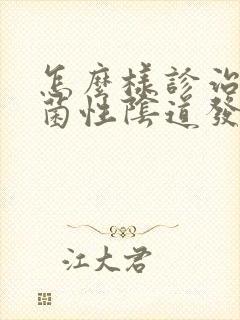 怎麼樣診治
菌性陰道發
江大君